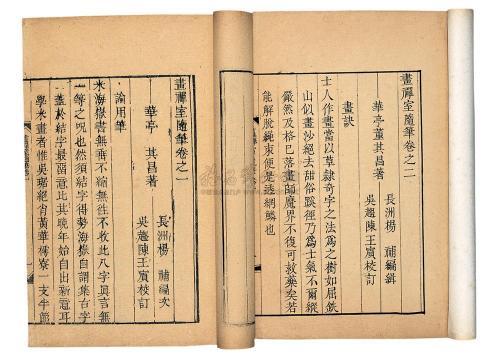 畫禪室隨筆卷之二
華亭董其昌著
長洲楊 補編輯
吳趨陳王賓校訂
畫訣
士人作畫當以草隸奇字之法為之樹如屈鉄
山似畫沙絕去甜俗蹊徑乃為士氣不爾縱
儼然及格巳落畫師魔界不復可救藥矣若
能解脫繩束便是透網鱗也
畫禪室隨筆卷之一
華亭 其昌著
長洲楊 補編次
吳趨陳王賓校訂
論用筆
米海嶽書無垂不縮無往不收此八字真言無
等之呪也然須結字得勢海嶽自謂集古字
蓋於結字最留意比其晚年始自出新意耳
學米書者惟吳琚絕肖黃華樗寮一支半節